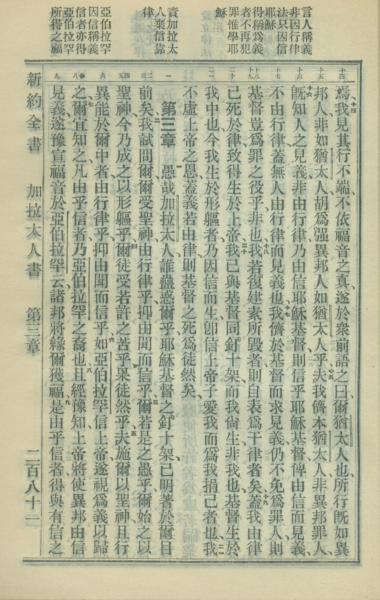 言人稱義
非因行律
法只因信
得稱爲義
者不再犯
罪惟學耶
穌
責加拉太
人棄信靠
律
亞伯拉罕
因信稱義
信者亦得
亞伯拉罕
所得之福
焉我見其行不端不依福音之真遂於衆前語之曰爾猶太人也所行旣如異
邦人非如猶太人胡爲强異邦人如猶太人乎夫我儕本猶太人非異邦罪人
旣知人之見義非由行律乃由信耶穌基督則信乎耶穌基督俾由信而見義
不由行律蓋無人由行律而見義也我儕於基督而求見義仍不免爲罪人則
基督豈爲罪之役乎非也我若復建素所毀者則自表爲干律者矣蓋我由律
已死於律致得生於上帝我已與基督同釘十架而我尙生非我也基督生於
我中也今我生於形軀者乃因信而生卽信上帝子愛我而爲我捐己者也我
不虛上帝之恩蓋義若由律則基督之死爲徒然矣
第三章 愚哉加拉太人誰蠱惑爾乎耶穌基督之釘十架已明著於爾目
前矣我試問爾爾受聖神由行律乎抑由聞而信乎爾若是之愚乎爾始之以
聖神今乃成之以形軀乎爾徒受若許之苦乎果徒然乎夫施爾以聖神且行
異能於爾中者由行律乎抑由聞而信乎如亞伯拉罕信上帝遂視爲義以歸
之爾宜知之凡由乎信者乃亞伯拉罕之裔也且經豫知上帝將使異邦由信
見義遂豫宣福音於亞伯拉罕云諸邦將緣爾獲福是由乎信者得與有信之
新約全書 加拉太人書 第三章 二百八十一